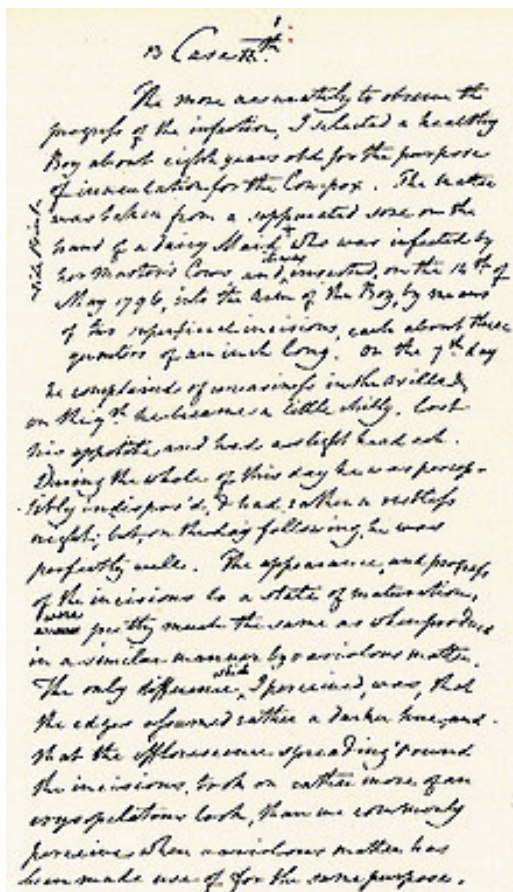 Case
The more accurately to observe the
progress of the infection, I selected a healthy
Boy about eight years old for the purpose
of inoculation for the Cow pox. The matter
was taken from a suppurated sore on the
hand of a dairy Maid who was infected by
her Master's Cows and inserted, on the 14th of
May 1796, into the arm of the Boy, by means
of two superficial incisions, each about three
quarters of an inch long. On the 7th day
he complained of uneasiness in the axilla &
on the 9th he became a little chilly, lost
his appetite and had a slight head ach.
During the whole of this day he was percep-
tibly indispos'd, & had rather a restless
night; but, on the day following, he was
perfectly well. The appearance, and progress
of the incisions to a state of maturation,
were pretty much the same as when produc'd
in a similar manner by variolous matter.
The only difference, which I perceived, was, that
the edges assumed rather a darker hue, and
that the efflorescence spreading round
the incisions, took on rather more of an
erysipelatous look, than we commonly
perceive when variolous matter has
been made use of for the same purpose.